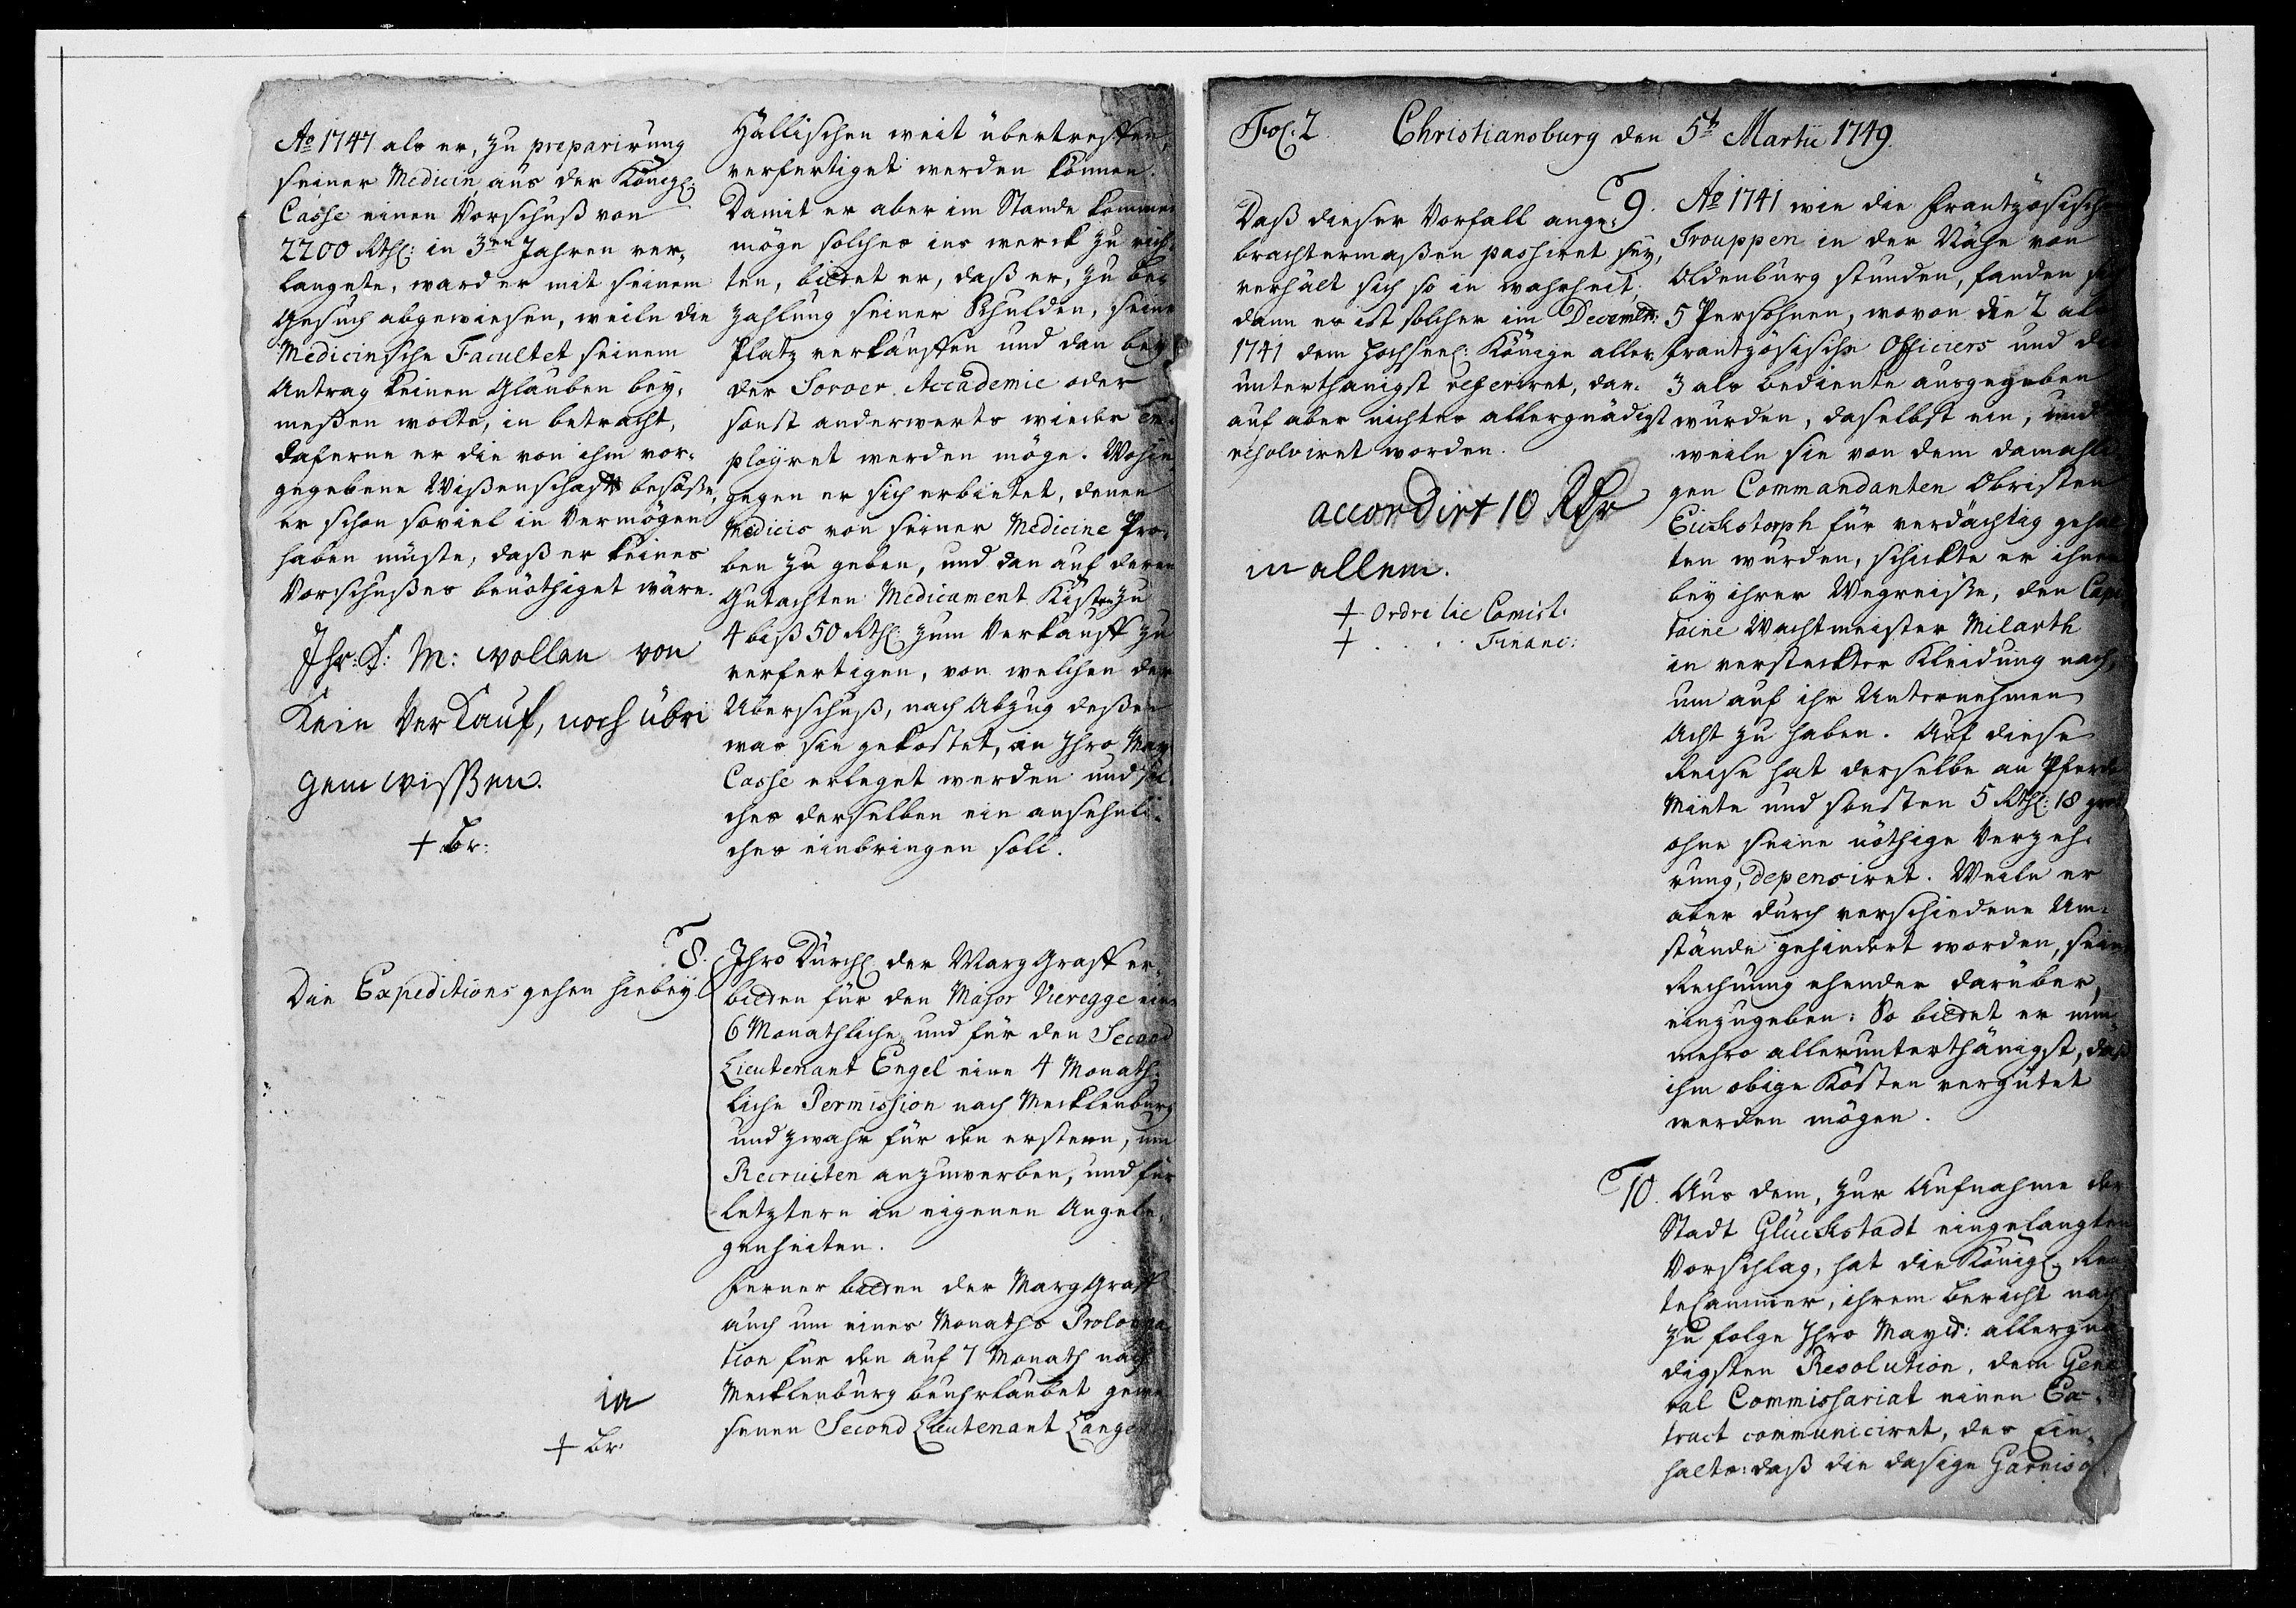 Ao 1747 als er, zu preparirung
seiner Medicin, aus der Königl:
Casse einen Vorschuß von
2200 Rthl: in 3en Jahren ver-
langete, ward er mit seinem
Gesuch abgewiesen, weiln die
Medicinsche Facultet seinem
Antrag keinen Glauben bey-
meßen wolte, in betracht,
daferne er die von ihm vor-
gegebene Wißenschafft besäße,
er schon soviel in Vermögen
haben müste, daß er keines
Vorschußes benöthiget wäre.
Ihr: K: M: wollen von
Kein Verkauf, noch übri
gem wissen.
+ Br:
Hällischen weit übertreffen,
verfertiget werden können.
Damit er aber im Stande kommen
möge solches ins werck zu rich-
ten, bittet er, daß er, zu be-
zahlung seiner Schulden, seine
Platz verkauffen und dan bey
der Soroer Accademie oder
sonst anderwerts wieder em-
ployret werden möge. Wohin-
gegen er sich erbietet, denen
Medicis von seiner Medicine Pro-
ben zu geben, und dan auf deren
Gutachten Medicament Kisten zu
4 biß 50 Rthl: zum Verkauff zu
verfertigen, von welchen der
Überschuß, nach Abzug deßen
was sie gekostet, in Ihro May
Casse erleget werden und sol-
ches derselben ein ansehnli-
ches einbringen soll.
8.
Die Expeditions gehen hiebey
Ihro Durchl: der Marg Graff er-
bitten für den Major Vieregge eine
6 Monathliche, und für den Second
Lieutenant Engel eine 4 Monath-
liche Permission nach Mecklenburg
und zwahr für den erstern, um
Recruiten anzuwerben, und für
letztern in eigenen Angele-
genheiten.
Ferner bitten der Marg Graff
auch um eines Monaths Prolonga
tion für den auf 7 Monath nach
Mecklenburg beuhrlaubet gewe
senen Second Lieutenant Lange
ja
+ Br:
Fol: 2. Christiansburg den 5t Martii 1749.
9.
Daß dieser Vorfall ange-
brachtermaßen passiret sey,
verhält sich so in wahrheit;
dann es ist solcher im Decembr:
1741 dem hochseel: Könige aller-
unterthänigst referiret, dar-
auf aber nichts allergnädigst
resolviret worden.
accordirt 10 Rthr
in allem.
+ Ordre lie Comist.
+ . . . Financ:
Ao 1741 wie die Frantzösische
Trouppen in der Nähe von
Oldenburg stunden, fanden sich
5 Persohnen, wovon die 2 als
Frantzösische Officiers und die
3 als bediente ausgegeben
wurden, daselbst ein, und
weiln sie von dem damahli
gen Commandanten Obristen
Eickstorph für verdächtig gehal
ten wurden, schickte er ihnen
bey ihrer Wegreise, den Capi
taine Wachtmeister Milarth
in versteckter Kleidung nach,
um auf ihr Unternehmen
Acht zu haben. Auf diese
Reise hat derselbe an Pferde
Miete und sonsten 5 Rthl: 18 grot
ohne seine nöthige Verzeh-
rung, depensiret. Weiln er
aber durch verschiedene Um-
stände gehindert worden, seine
Rechnung ehender darüber,
einzugeben: So bittet er nun
mehro allerunterthänigst, daß
ihm obige Kösten vergütet
werden mögen.
10. Aus dem, zur Aufnahme der
Stadt Glückstadt eingelangten
Vorschlag, hat die Königl: Ren
teCammer, ihrem bericht nach
zu folge Ihro Mayt: allergnä
digsten Resolution, dem Gene
ral Commissariat einen Ex-
tract communiciret, des Ein-
halts: daß die dasige Garnison